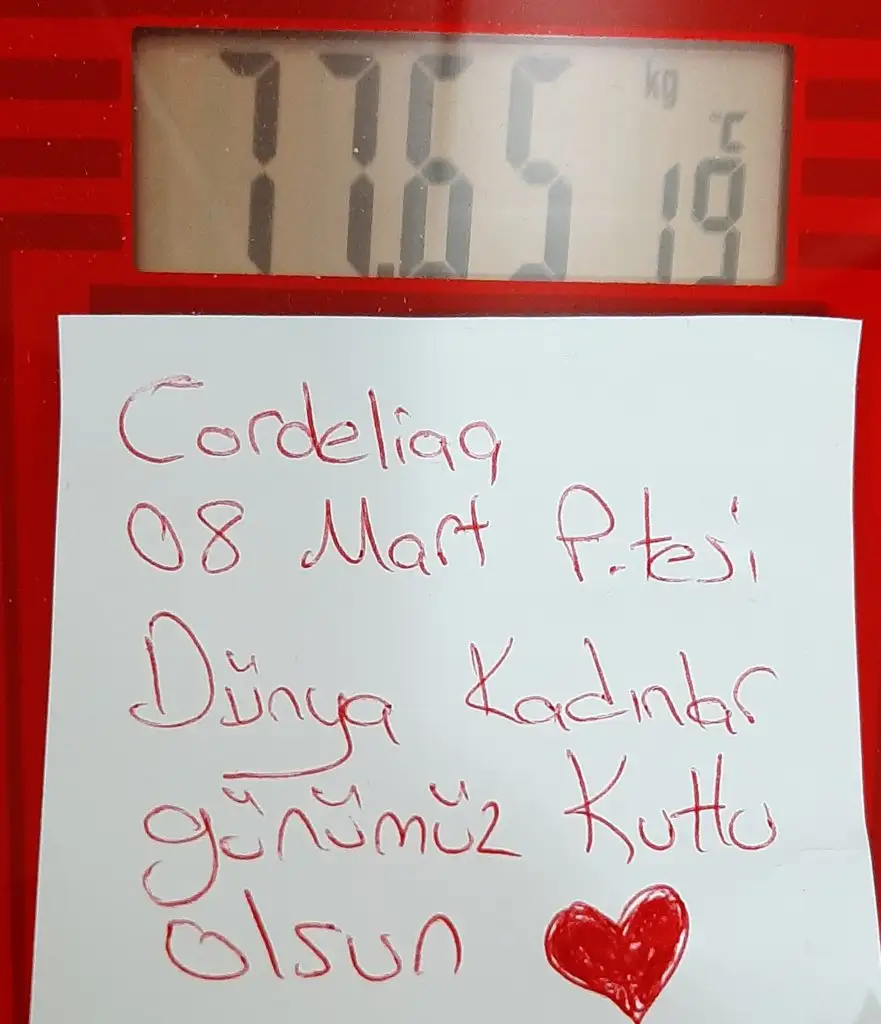 77.65 kg
19 °C
Cordeliaq
08 Mart P.tesi
Dünya Kadınlar
günümüz Kutlu
olsun